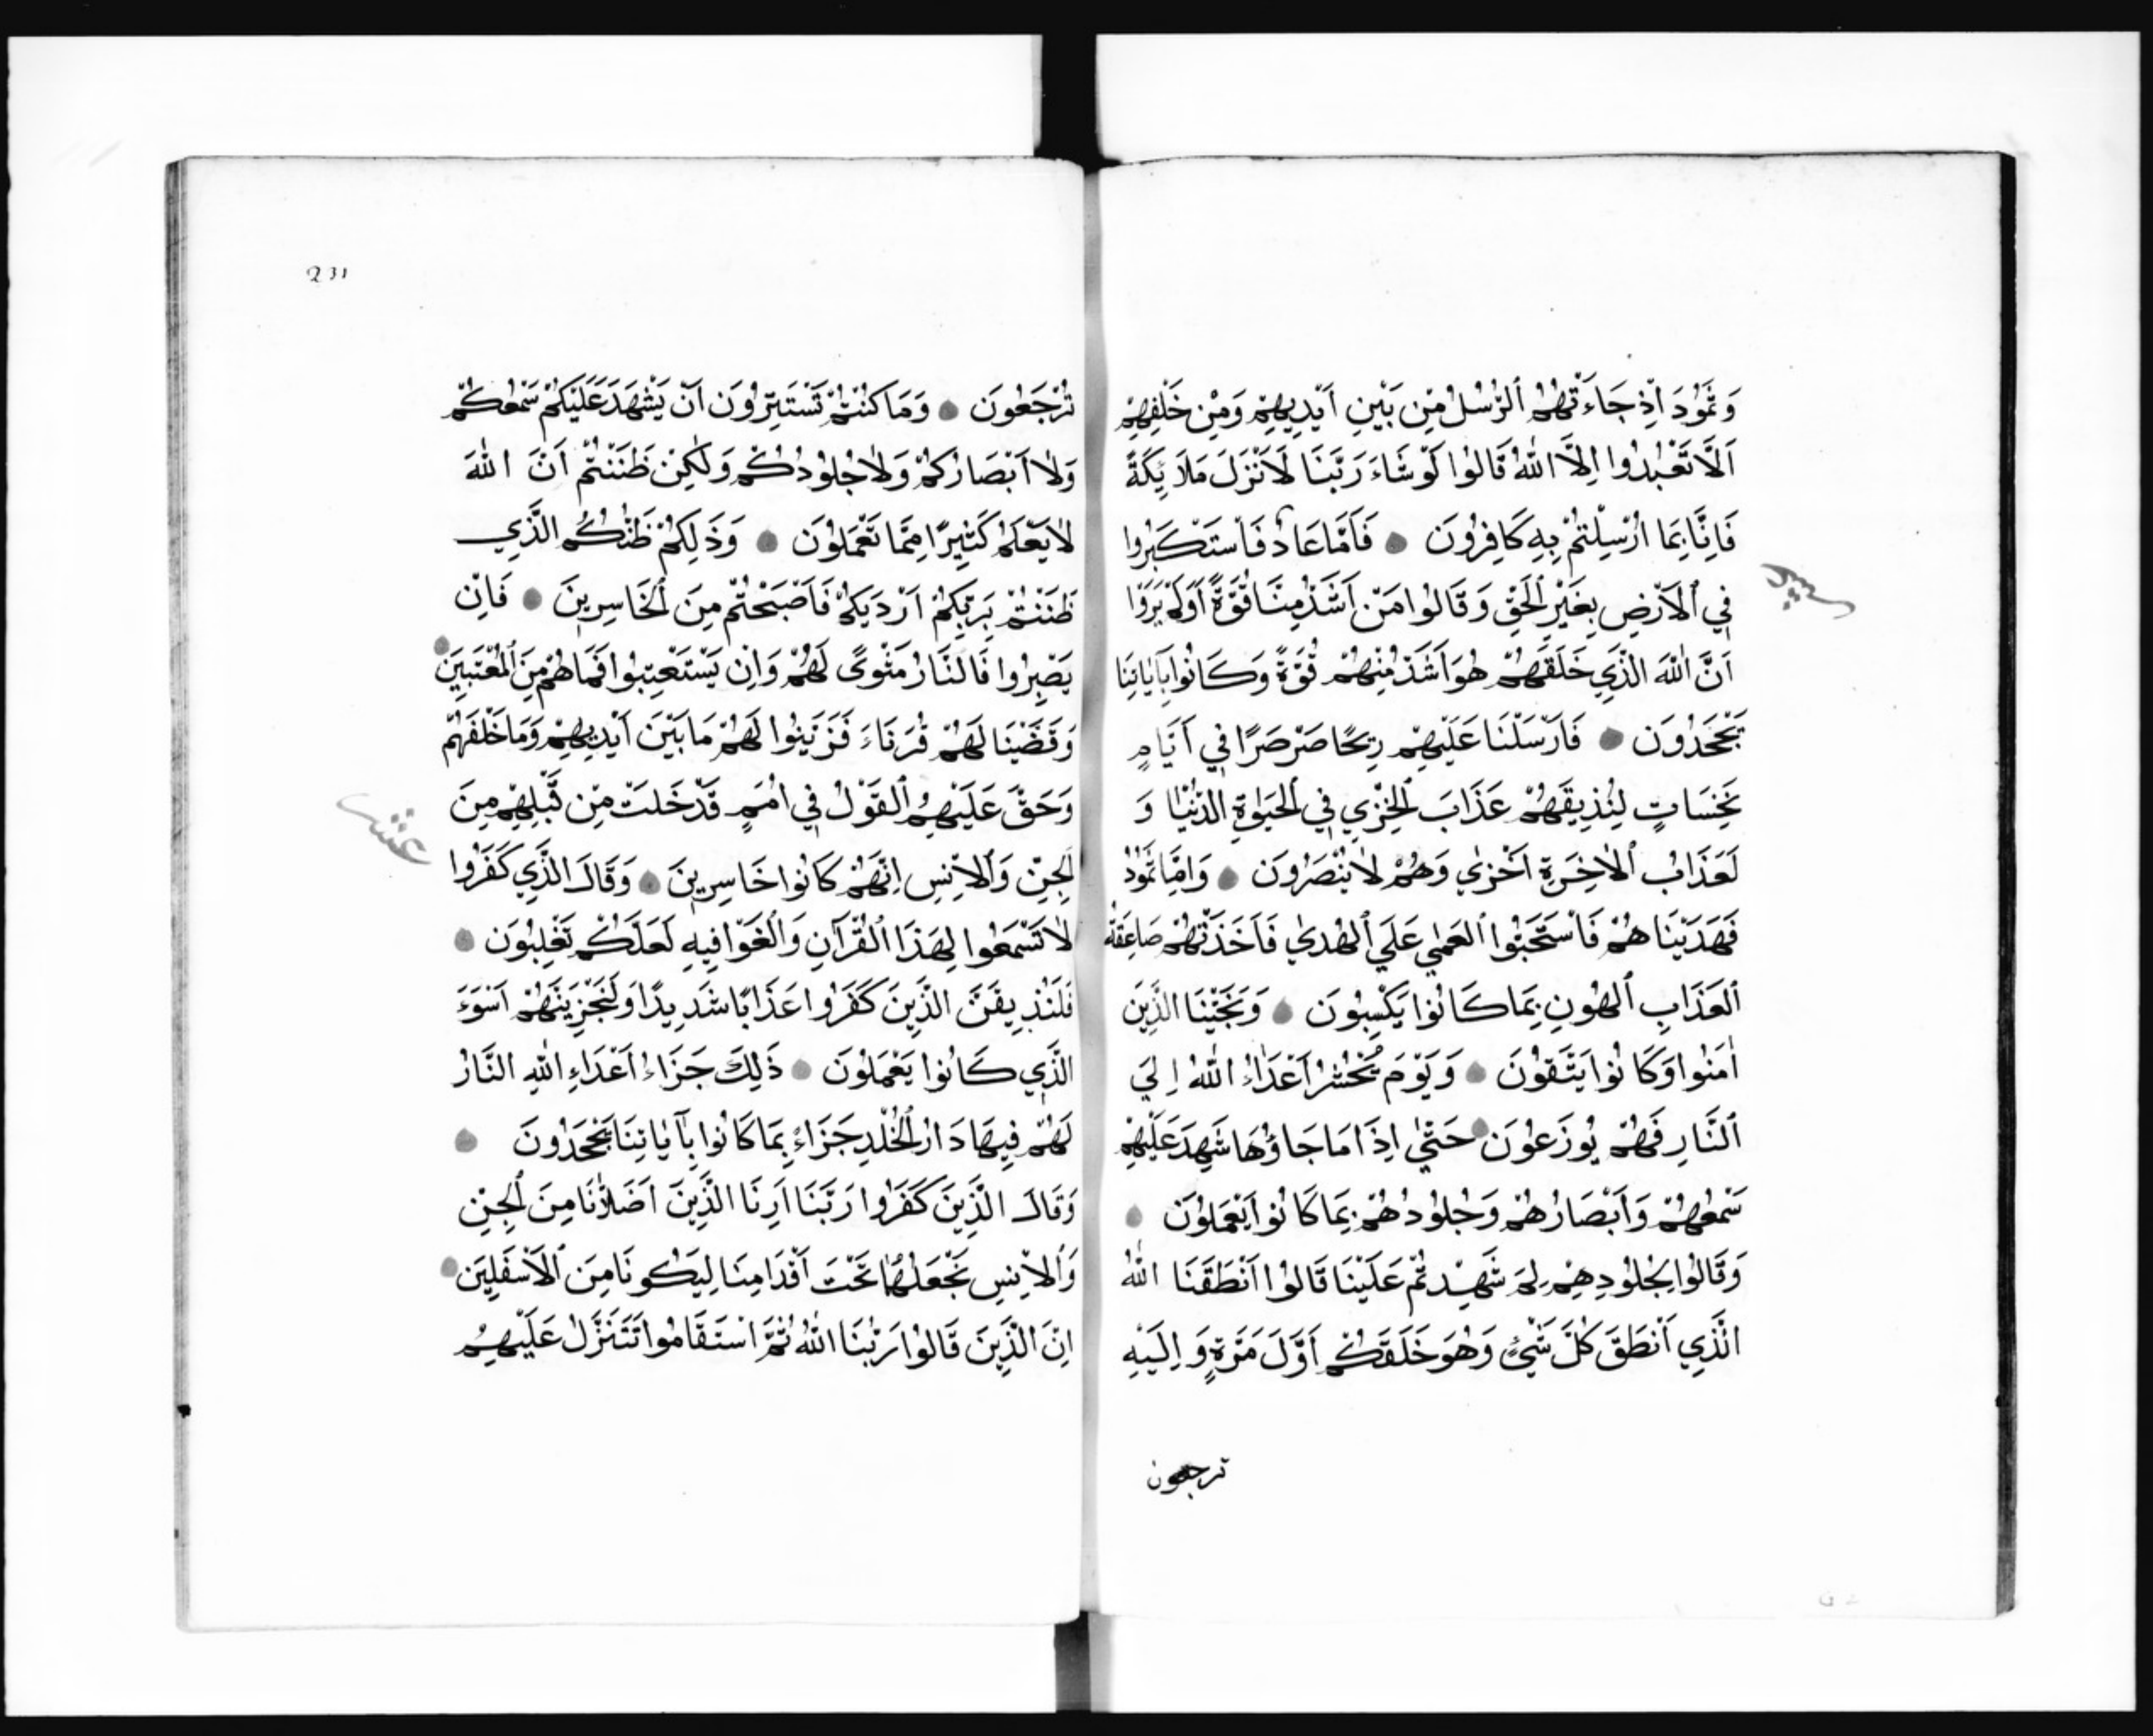 وَثَمُودَ اِذْ جَاءَتْهُمُ الرُّسُلُ مِنْ بَيْنِ اَيْدِيهِمْ وَمِنْ خَلْفِهِمْ
اَلَّا تَعْبُدُوا اِلَّا اللهَ قَالُوا لَوْ شَاءَ رَبُّنَا لَاَنْزَلَ مَلَائِكَةً
فَاِنَّا بِمَا اُرْسِلْتُمْ بِهِ كَافِرُونَ ● فَاَمَّا عَادٌ فَاسْتَكْبَرُوا
فِي الْاَرْضِ بِغَيْرِ الْحَقِّ وَقَالُوا مَنْ اَشَدُّ مِنَّا قُوَّةً اَوَلَمْ يَرَوْا
اَنَّ اللهَ الَّذِي خَلَقَهُمْ هُوَ اَشَدُّ مِنْهُمْ قُوَّةً وَكَانُوا بِآيَاتِنَا
يَجْحَدُونَ ● فَاَرْسَلْنَا عَلَيْهِمْ رِيحًا صَرْصَرًا فِي اَيَّامٍ
نَحِسَاتٍ لِنُذِيقَهُمْ عَذَابَ الْخِزْيِ فِي الْحَيٰوةِ الدُّنْيَا وَ
لَعَذَابُ الْاٰخِرَةِ اَخْزٰي وَهُمْ لَا يُنْصَرُونَ ● وَاَمَّا ثَمُودُ
فَهَدَيْنَاهُمْ فَاسْتَحَبُّوا الْعَمٰي عَلَي الْهُدٰي فَاَخَذَتْهُمْ صَاعِقَةُ
الْعَذَابِ الْهُونِ بِمَا كَانُوا يَكْسِبُونَ ● وَنَجَّيْنَا الَّذِينَ
اٰمَنُوا وَكَانُوا يَتَّقُونَ ● وَيَوْمَ يُحْشَرُ اَعْدَاءُ اللهِ اِلَي
النَّارِ فَهُمْ يُوزَعُونَ ● حَتّٰي اِذَا مَا جَاؤُهَا شَهِدَ عَلَيْهِمْ
سَمْعُهُمْ وَاَبْصَارُهُمْ وَجُلُودُهُمْ بِمَا كَانُوا يَعْمَلُونَ ●
وَقَالُوا لِجُلُودِهِمْ لِمَ شَهِدْتُمْ عَلَيْنَا قَالُوا اَنْطَقَنَا اللهُ
الَّذِي اَنْطَقَ كُلَّ شَيْءٍ وَهُوَ خَلَقَكُمْ اَوَّلَ مَرَّةٍ وَاِلَيْهِ
ترجعون
231
تُرْجَعُونَ ● وَمَا كُنْتُمْ تَسْتَتِرُونَ اَنْ يَشْهَدَ عَلَيْكُمْ سَمْعُكُمْ
وَلَا اَبْصَارُكُمْ وَلَا جُلُودُكُمْ وَلٰكِنْ ظَنَنْتُمْ اَنَّ اللهَ
لَا يَعْلَمُ كَثِيرًا مِمَّا تَعْمَلُونَ ● وَذٰلِكُمْ ظَنُّكُمُ الَّذِي
ظَنَنْتُمْ بِرَبِّكُمْ اَرْدٰيكُمْ فَاَصْبَحْتُمْ مِنَ الْخَاسِرِينَ ● فَاِنْ
يَصْبِرُوا فَالنَّارُ مَثْوًى لَهُمْ وَاِنْ يَسْتَعْتِبُوا فَمَا هُمْ مِنَ الْمُعْتَبِينَ ●
وَقَيَّضْنَا لَهُمْ قُرَنَاءَ فَزَيَّنُوا لَهُمْ مَا بَيْنَ اَيْدِيهِمْ وَمَا خَلْفَهُمْ
وَحَقَّ عَلَيْهِمُ الْقَوْلُ فِي اُمَمٍ قَدْ خَلَتْ مِنْ قَبْلِهِمْ مِنَ
عشر
الْجِنِّ وَالْاِنْسِ اِنَّهُمْ كَانُوا خَاسِرِينَ ● وَقَالَ الَّذِي كَفَرُوا
لَا تَسْمَعُوا لِهٰذَا الْقُرْآنِ وَالْغَوْا فِيهِ لَعَلَّكُمْ تَغْلِبُونَ ●
فَلَنُذِيقَنَّ الَّذِينَ كَفَرُوا عَذَابًا شَدِيدًا وَلَنَجْزِيَنَّهُمْ اَسْوَءَ
الَّذِي كَانُوا يَعْمَلُونَ ● ذٰلِكَ جَزَاءُ اَعْدَاءِ اللهِ النَّارُ
لَهُمْ فِيهَا دَارُ الْخُلْدِ جَزَاءً بِمَا كَانُوا بِآيَاتِنَا يَجْحَدُونَ ●
وَقَالَ الَّذِينَ كَفَرُوا رَبَّنَا اَرِنَا الَّذِينَ اَضَلَّانَا مِنَ الْجِنِّ
وَالْاِنْسِ نَجْعَلْهُمَا تَحْتَ اَقْدَامِنَا لِيَكُونَا مِنَ الْاَسْفَلِينَ ●
اِنَّ الَّذِينَ قَالُوا رَبُّنَا اللهُ ثُمَّ اسْتَقَامُوا تَتَنَزَّلُ عَلَيْهِمُ